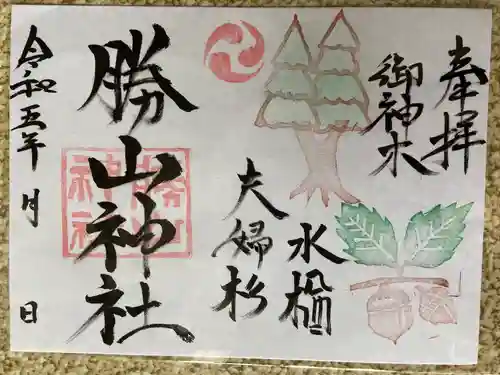 奉拝
御神木
水楢
夫婦杉
勝山神社
令和五年 月 日